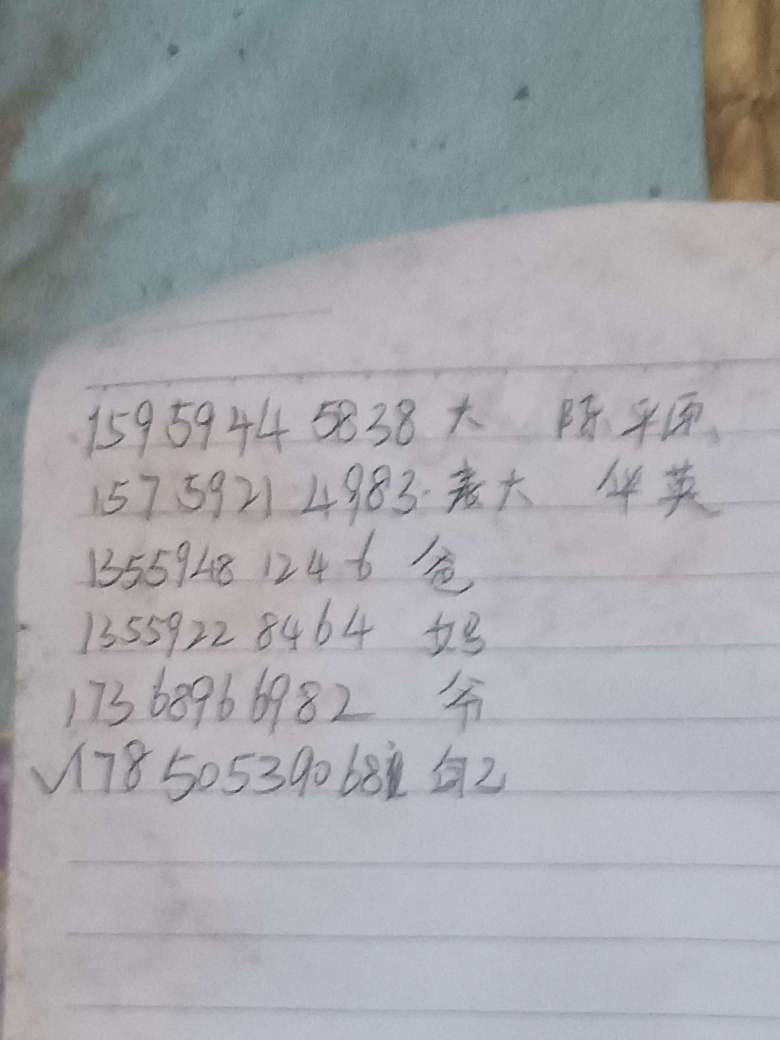 15959445838 大 陈平原
15759214983 老大 华英
13559481246 爸
13559228464 妈
17368966982 爷
√17850539068